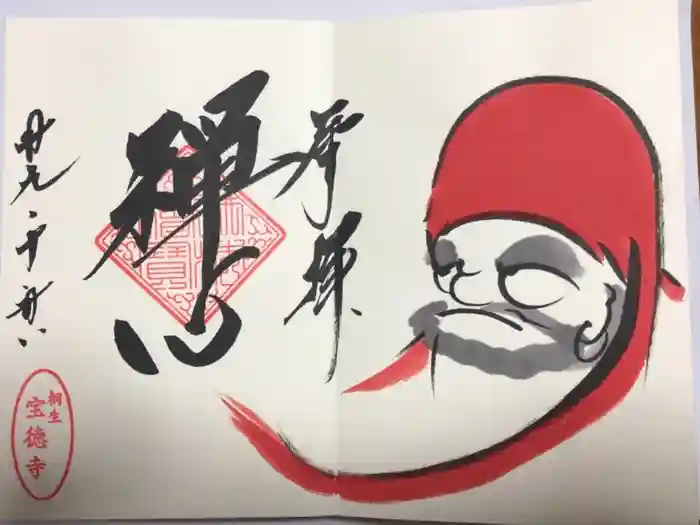 奉拝
禅心
廿九・十・廿八
桐生
宝徳寺